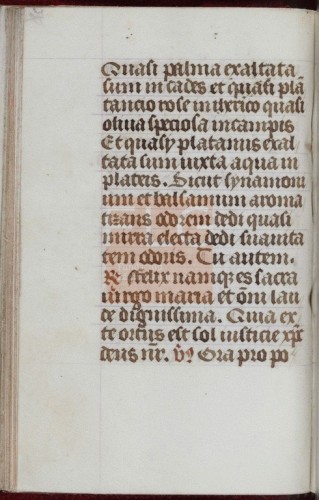 Quasi palma exaltata
sum in cades et quasi plā
tancio rose in iherico quasi
oliua speciosa in campis
Et quasy platanus exal
tata sum iuxta aqua in
plateis. Sicut synamom
um et balsamum aroma
tizans odorem dedi quasi
mirra electa dedi suauita
tem odoris. Tu autem.
R̷ Felix namq; es sacra
uirgo maria et om̄i lau
de dignissima. Quia ex
te ortus est sol iusticie xp̄c
deus nr̄. v̷ Ora pro po